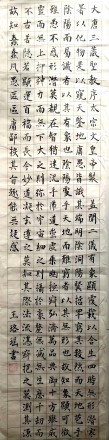 大唐三藏聖教序 太宗文皇帝製 蓋聞二儀有象顯覆載以含生四時無形潛
寒暑以化物是以窺天鑑地庸愚皆識其端明陰洞陽賢哲罕窮其數然而天地苞乎
陰陽而易識者以其有象也陰陽處乎天地而難窮者以其無形也故知象顯可徵
雖愚不惑形潛莫覩在智猶迷況乎佛道崇虛乘幽控寂弘濟萬品典御十方舉威
靈而無上抑神力而無下大之則彌於宇宙細之則攝於毫釐無滅無生歷千劫而
不古若隱若顯運百福而長今妙道凝玄遵之莫知其際法流湛寂挹之莫測其源
故知蠢蠢凡愚區區庸鄙投其旨趣能無疑惑 王 福書